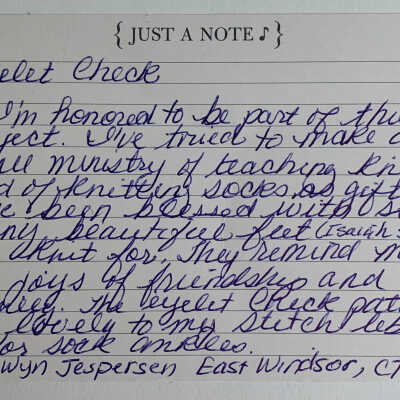 { JUST A NOTE ♪ }
elet Check
I'm honored to be part of thi
ject. I've tried to make a
ministry of teaching kni
d of knitting socks as gift
e been blessed with s
ny beautiful feet (Isaiah 5
knit for. They remind m
joys of friendship and
The eyelet Check patt
lovely to my stitch lib
for sock ankles.
wyn Jespersen East Windsor, CT